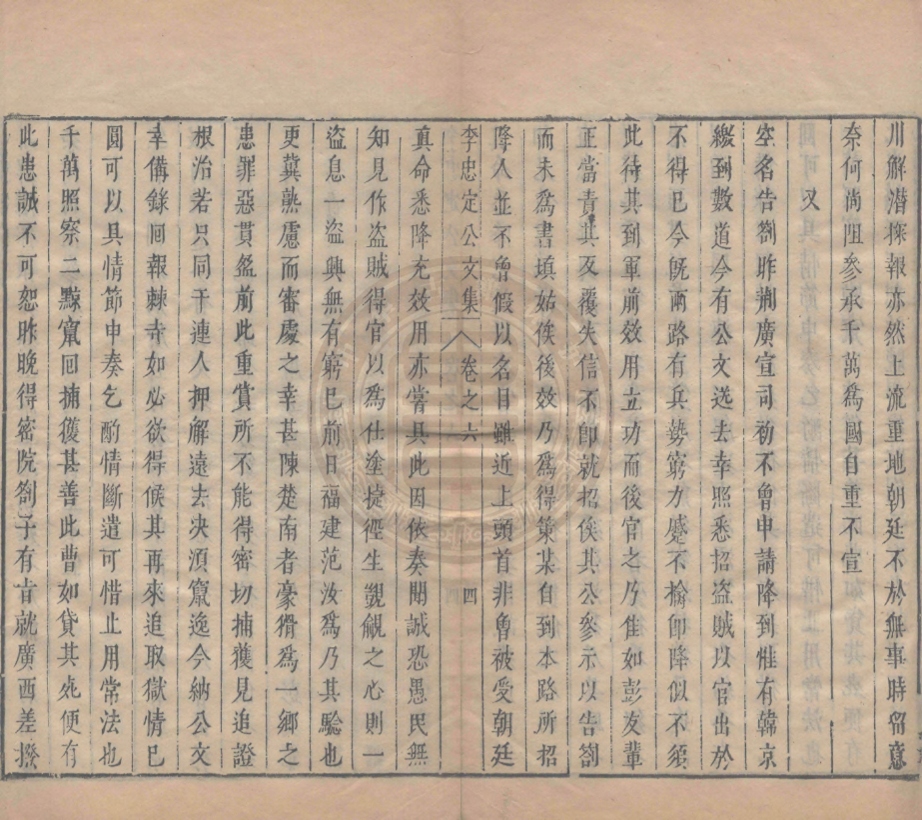 川解潛探報亦然上流重地朝廷不於無事時留意
奈何尚阻參承千萬爲國自重不宣
又
空名告劄昨荆廣宣司初不曾申請降到惟有韓京
繳到數道今有公文送去幸照悉招盜賊以官出於
不得已今旣兩路有兵勢窮力蹙不擒卽降似不須
此待其到軍前效用立功而後官之乃佳如彭友輩
正當責其反覆失信不卽就招俟其公參示以告劄
而未爲書塡姑俟後效乃爲得策某自到本路所招
降人並不曾假以名目雖近上頭首非曾被受朝廷
李忠定公文集 卷之六 四
真命悉降充效用亦嘗具此因依奏聞誠恐愚民無
知見作盜賊得官以爲仕塗捷徑生覬覦之心則一
盜息一盜興無有窮已前日福建范汝爲乃其驗也
更冀熟慮而審處之幸甚陳楚南者豪猾爲一鄉之
患罪惡貫盈前此重賞所不能得密切捕獲見追證
根治若只同干連人押解遠去决須竄逸今納公文
幸備錄回報棘寺如必欲得候其再來追取獄情已
圓可以具情節申奏乞酌情斷遣可惜止用常法也
千萬照察二黥竄回捕獲甚善此曹如貸其死便有
此患誠不可恕昨晚得密院劄子有旨就廣西差撥